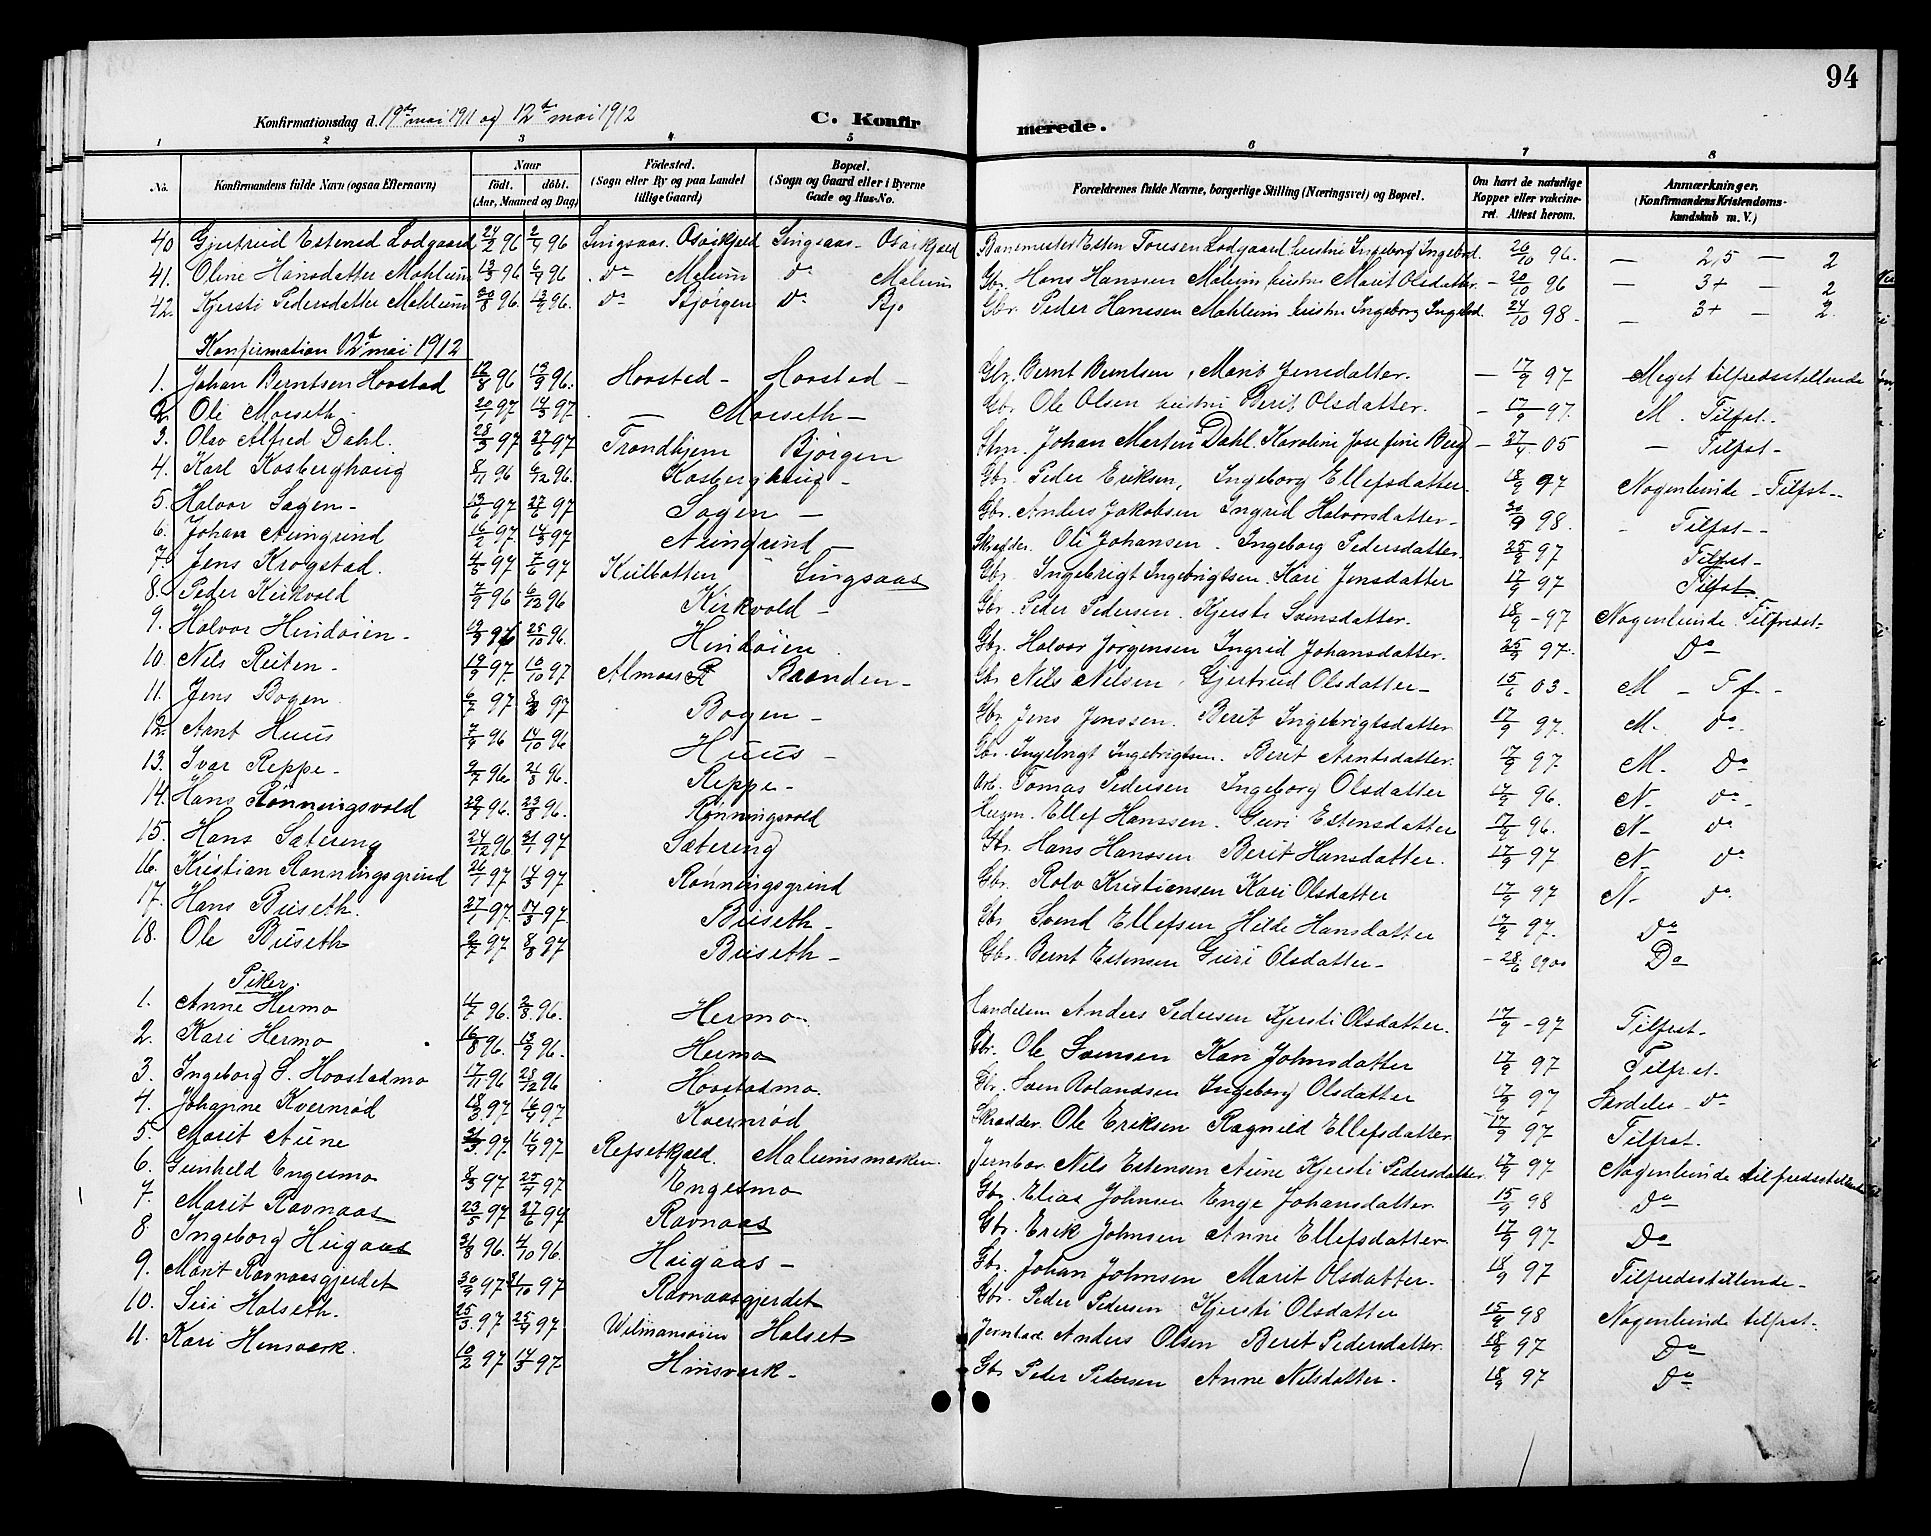 94
Konfirmationsdag d. 19de mai 1911 og 12te mai 1912 C. Konfirmerede.
1 2 3 4 5 6 7 8
No. Konfirmandens fulde Navn (ogsaa Efternavn) Naar födt. döbt. (Aar, Maaned og Dag) Födested. (Sogn eller By og paa Landet tillige Gaard) Bopæl. (Sogn og Gaard eller i Byerne Gade og Hus-No. Forældrenes fulde Navne, borgerlige Stilling (Næringsvei) og Bopæl. Om havt de naturlige Kopper eller vakcineret. Attest herom. Anmærkninger. (Konfirmandens Kristendomskundskab m. V.)
40 Gjertrud Estensd Lodgaard 24/2 96 2/4 96 Singsaas Osöikjeld Singsaas - Osöikjeld Banemester Esten Toresen Lodgaard hustru Ingeborg Ingebrd. 26/10 96. — 2,5 — 2
41. Oline Hansdatter Mahlum 13/3 96 6/4 96 do Malum do Malum Gbr. Hans Hanssen Malum hustru Marit Olsdatter. - 20/10 96 — 3+ — 2
42. Kjersti Pedersdatter Mahlum 20/8 96 13/9 96. do Bjørgen do Bjø Gbr. Peder Hanssen Mahlum hustru Ingeborg Ingebrd. 24/10 98 - — 3+ — 2
Konfirmation 12te mai 1912
1. Johan Berntsen Hovstad 12/8 96 13/9 96. Hovstad - Hovstad - Gbr. Bernt Berntsen, Marit Jensdatter. — 17/9 97 Meget tilfredsstillende
2. Ole Moseth - 20/1 97 14/3 97 — Moseth — Gbr Ole Olsen hustru Berit Olsdatter. - 17/9 97. M. Tilfst.
3. Olav Alfred Dahl. 28/3 97 27/6 97 Trondhjem Bjørgen Johan Morten Dahl. Karoline Josefine Berg - 27/4 05 — Tilfst -
4. Karl Kosberghaug 8/11 96 6/12 96. Kosberghaug - Gbr. Peder Eriksen, Ingeborg Ellefsdatter. 18/9 97 Nogenlunde - Tilfst -
5. Halvor Sagen - 13/6 97 27/6 97 Sagen — Gbr. Anders Jakobsen Ingrid Halvorsdatter - 30/9 98. - Tilfst -
6. Johan Aungrind 16/2 97. 14/3 97 Aungrind — Skrædder. Ole Johansen. Ingeborg Pedersdatter. 25/9 97 Tilfst -
7. Jens Krogstad. 4/5 97 7/6 97 Kulbotten Singsaas Gbr. Ingebrigt Ingebrigtsen Kari Jensdatter 17/9 97 Tilfst.
8. Peder Kirkvold 7/9 96 6/12 96 Kirkvold - Gbr. Peder Pedersen. Kjersti Svensdatter. 18/9 - 97 Nogenlunde Tilfredst -
9. Halvor Hindøien - 19/9 96 25/10 96. Hindøien Gbr. Halvor Jørgensen Ingrid Johansdatter. 25/9 97. Do
10. Nels Reiten - 19/9 97. 10/10 97 Almaas Baanden - Gbr Nils Nilsen, Gjertrud Olsdatter - 15/6 03 - M - Tf. -
11. Jens Bogen 6/2 97 8/2 97 Bogen - Gbr Jens Jenssen. Berit Ingebrigtsdatter 17/9 97. M. do.
12. Arnt Huus 7/9 96 14/10 96 Huus - Gbr. Ingebrigt Ingebrigtsen. Berit Arntsdatter. 17/9 97. M. Do
13. Ivar Reppe - 2/7 96 21/8 96. Reppe - Arb. Tomas Pedersen Ingeborg Olsdatter 17/9 96. N - do -
14. Hans Rönningsvold 29/7 96. 23/8 96. Rönningsvold Husm. Ellef Hanssen. Guri Estensdatter 17/9 96. N - do
15. Hans Sætereng 24/12 96 31/1 97 Sætereng Gbr. Hans Hanssen Berit Hansdatter. 17/9 97 N - do
16. Kristian Rønningsgrind 26/1 97 14/3 97 Rønningsgrind Gbr. Rolv Kristiansen Kari Olsdatter 17/9 97 N - do.
17. Hans Buseth. 27/1 97. 14/3 97. Buseth - Gbr. Svend Ellefsen Hilde Hansdatter 17/9 97. Do
18. Ole Buseth 2/7 97 8/8 97 Buseth - Gbr. Bernt Estensen Guri Olsdatter - - 28/6 1900 Do
Piker.
1. Anne Hermo 4/7 96. 2/8 96. Hermo - Handelsm Anders Pedersen Kjersti Olsdatter. 17/9 - 97 Tilfrst -
2. Kari Hermo 16/8 96. 13/9 96. Hermo Gbr. Ole Svensen Kari Johnsdatter 17/9 97 Tilfrst -
3. Ingeborg S. Hovstadmo 17/11 96 28/12 96 Hovstadmo. Gbr. Sven Rolandsen Ingeborg Olsdatter 17/9 97 Særdeles - do
4. Johanne Kvernrød 18/3 97 16/4 97 Kvernrød Skrædder Ole Eriksen Ragnild Ellefsdatter 17/9 97 Tilfrst.
5. Marit Aune 21/3 97. 16/4 97 Refsetkjeld. Malumsmarken. Jernbar. Nils Estensen Aune Kjersti Pedersdatter. 17/9 97 Nogenlunde tilfredsstillende
6. Gunheld Engesmo 8/3 97 25/4 97 Engesmo Gbr. Elias Johnsen Enge Johansdatter 15/9 98 Do
7. Marit Ravnaas 23/5 97 27/6 97 Ravnaas Gbr. Erik Johnsen Anne Ellefsdatter 17/9 97 Do
8. Ingeborg Haugaas 31/8 96. 4/10 96. Haugaas - Gbr. Johan Johnsen Marit Olsdatter. 18/9 97 Tilfredsstillende -
9. Marit Ravnaasgjerdet 30/9 97 31/10 97 Ravnaasgjerdet Gbr. Peder Pedersen Kjersti Olsdatter 15/9 98 Nogenlunde tilfrst.
10. Siri Halseth. 25/3 97 25/4 97 Wilmansøien Halset Jernbar Anders Olsen Berit Pedersdatter. 18/9 97 Do
11. Kari Hinsverk. 10/2 97 14/3 97 Hinsverk - Gbr Peder Pedersen Anne Nilsdatter. 18/9 97 Do